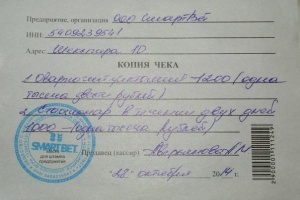 Предприятие, организация ООО СмартВет
ИНН: 5409239541
Адрес: Шекспира 10
КОПИЯ ЧЕКА
1. 1200 (одна
тысяча двести рублей)
2. Стационар в течении двух дней
1000 (одна тысяча рублей)
SMARTBET
Продавец (кассир)
"28" октября 2014 г.